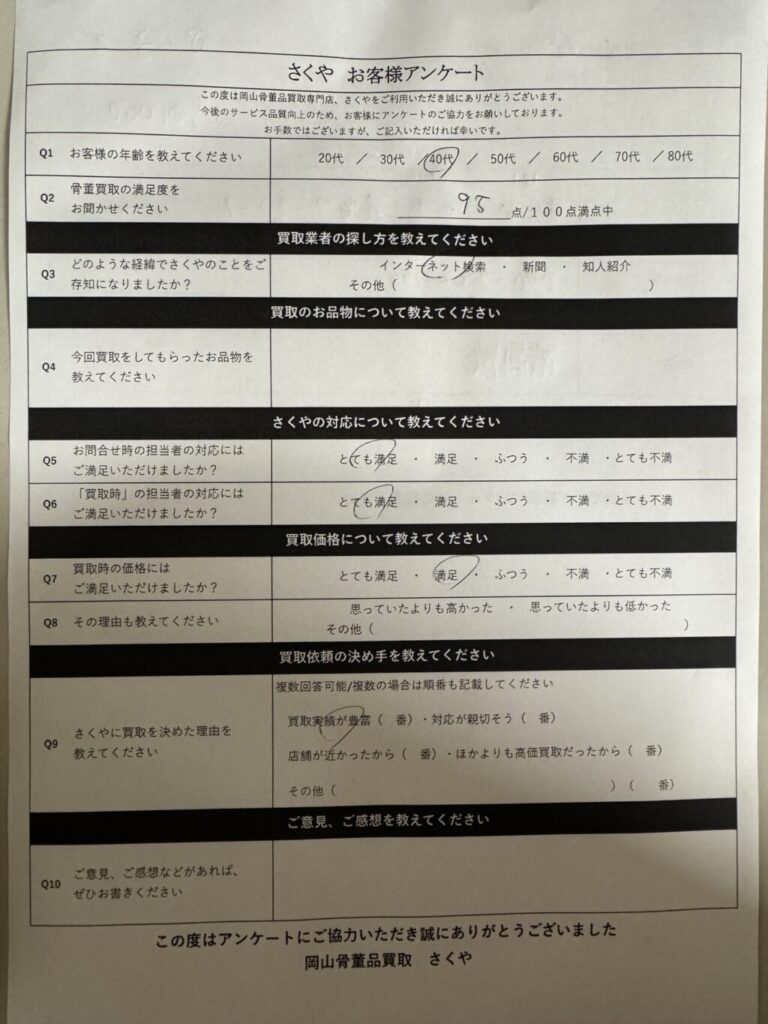 さくや お客様アンケート
この度は岡山骨董品買取専門店、さくやをご利用いただき誠にありがとうございます。
今後のサービス品質向上のため、お客様にアンケートのご協力をお願いしております。
お手数ではございますが、ご記入いただければ幸いです。
Q1 お客様の年齢を教えてください 20代 / 30代 / 40代 / 50代 / 60代 / 70代 / 80代
Q2 骨董買取の満足度を
お聞かせください
95 点/100点満点中
買取業者の探し方を教えてください
Q3 どのような経緯でさくやのことをご
存知になりましたか?
インターネット検索 ・ 新聞 ・ 知人紹介
その他( )
買取のお品物について教えてください
Q4 今回買取をしてもらったお品物を
教えてください
さくやの対応について教えてください
Q5 お問合せ時の担当者の対応には
ご満足いただけましたか?
とても満足 ・ 満足 ・ ふつう ・ 不満 ・とても不満
Q6 「買取時」の担当者の対応には
ご満足いただけましたか?
とても満足 ・ 満足 ・ ふつう ・ 不満 ・とても不満
買取価格について教えてください
Q7 買取時の価格には
ご満足いただけましたか?
とても満足 ・ 満足 ・ ふつう ・ 不満 ・とても不満
Q8 その理由も教えてください
思っていたよりも高かった ・ 思っていたよりも低かった
その他( )
買取依頼の決め手を教えてください
Q9 さくやに買取を決めた理由を
教えてください
複数回答可能/複数の場合は順番も記載してください
買取実績が豊富( 番)・対応が親切そう( 番)
店舗が近かったから( 番)・ほかよりも高価買取だったから( 番)
その他( )( 番)
ご意見、ご感想を教えてください
Q10 ご意見、ご感想などがあれば、
ぜひお書きください
この度はアンケートにご協力いただき誠にありがとうございました
岡山骨董品買取 さくや